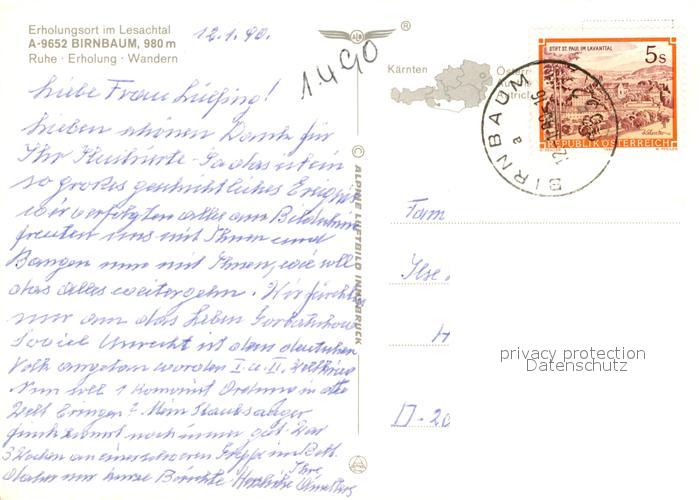 Erholungsort im Lesachtal
A-9652 BIRNBAUM, 980 m
Ruhe · Erholung · Wandern
12.1.90.
1.490
®
Liebe Frau
Lieben schönen Dank für
Ihr Illustrierte. Ja das ist ein
so großes geschichtliches Ereignis
wir verfolgten alles am Bildschirm
freuten uns mit Ihnen und
Bangen nun mit Ihnen, wie will
das alles weitergehn. Wir fürchten
nur um das Leben Gorbatschow
Soviel Unrecht ist dem deutschen
Volk angetan worden I. u. II. Weltkrieg
Nun soll 1 Komunist Ordnung in die
Welt bringen? Mein Staubsauger
funktioniert noch immer gut. War
3 Wochen an einer schweren Grippe im Bett.
daher nur kurze Berichte. Herzliche Grüße Ihre
© ALPINE LUFTBILD INNSBRUCK
Kärnten
STIFT ST. PAUL IM LAVANTTAL
5s
REPUBLIK ÖSTERREICH
BIRNBAUM
a
Fam
Ilse
H
D-20
privacy protection
Datenschutz